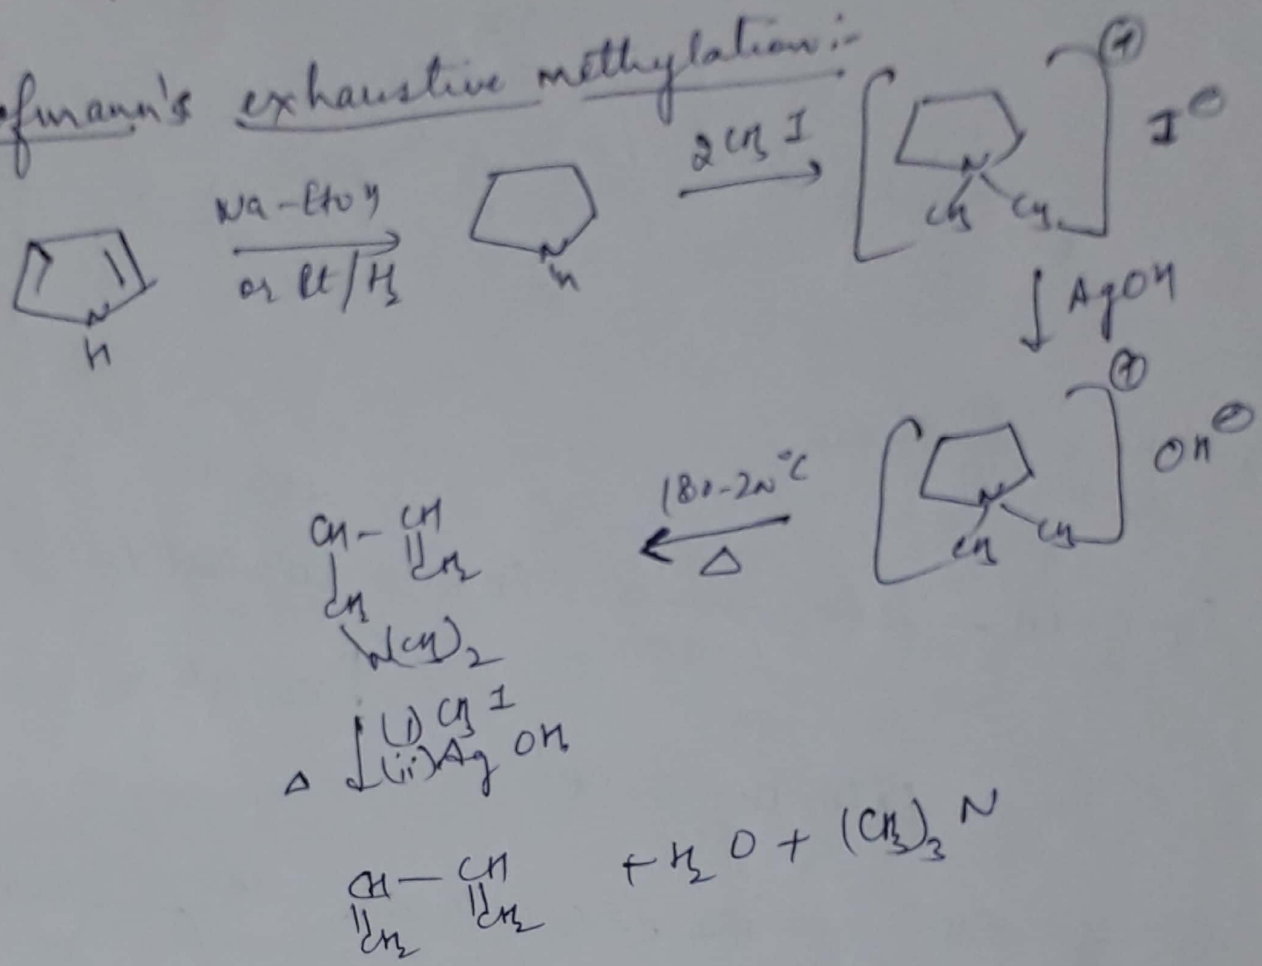 ofmann's exhaustive methylation :-
Na-EtOH
or Pt/H₂
N
H
N
H
2CH₃I
[N CH₃ CH₃]⊕ I⊖
AgOH
[N CH₃ CH₃]⊕ OH⊖
180-200°C
Δ
CH-CH
CH₂
CH₂
N(CH₃)₂
(i) CH₃I
Δ (ii) AgOH
CH-CH + H₂O + (CH₃)₃N
CH₂ CH₂